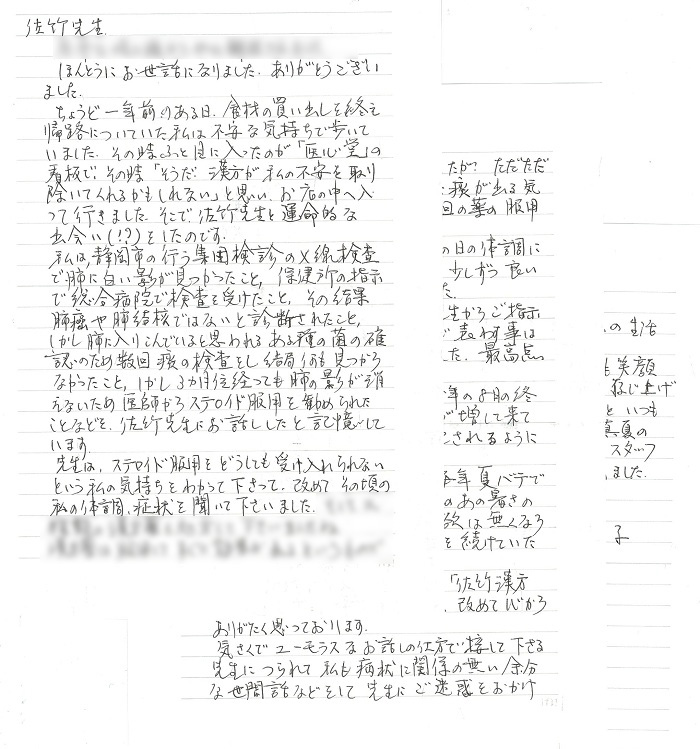 佐竹先生
ほんとうにお世話になりました。ありがとうござい
ました。
ちょうど一年前のある日、食材の買い出しを終え
帰路についていた私は不安な気持ちで歩いて
いました。その時ふっと目に入ったのが「医心堂」の
看板で、その時「そうだ 漢方が私の不安を取り
除いてくれるかもしれない」と思い、お店の中へ入
って行きました。そこで佐竹先生と運命的な
出会い(!?)をしたのです。
私は、静岡市の行う集団検診のX線検査
で肺に白い影が見つかったこと、保健所の指示
で総合病院で検査を受けたこと、その結果
肺癌や肺結核ではないと診断されたこと、
しかし肺に入りこんでいると思われるある種の菌の確
認のため数回痰の検査をし結局何も見つから
なかったこと、しかし3か月位経っても肺の影が消
えないため医師からステロイド服用を勧められた
ことなどを、佐竹先生にお話ししたと記憶して
います。
先生は、ステロイド服用をどうしても受け入れられない
という私の気持ちをわかって下さって、改めてその頃の
私の体調、症状を聞いて下さいました。
たが、ただただ
痰が出る気
回の薬の服用
の日の体調に
少しずつ良い
た。
生からご指示
表わす事は
た。最高点
年の8月の終
増して来て
されるように
年夏バテで
のあの暑さの
欲は無くなら
を続けていた
「佐竹漢方
、改めて心から
の生活
も笑顔
ねじ上げ
と いつも
真夏の
スタッフ
ました。
子
ありがたく思っております。
気さくでユーモラスなお話しの仕方で接して下さる
先生につられて私も病状に関係の無い余分
な世間話などをして先生にご迷惑をおかけ